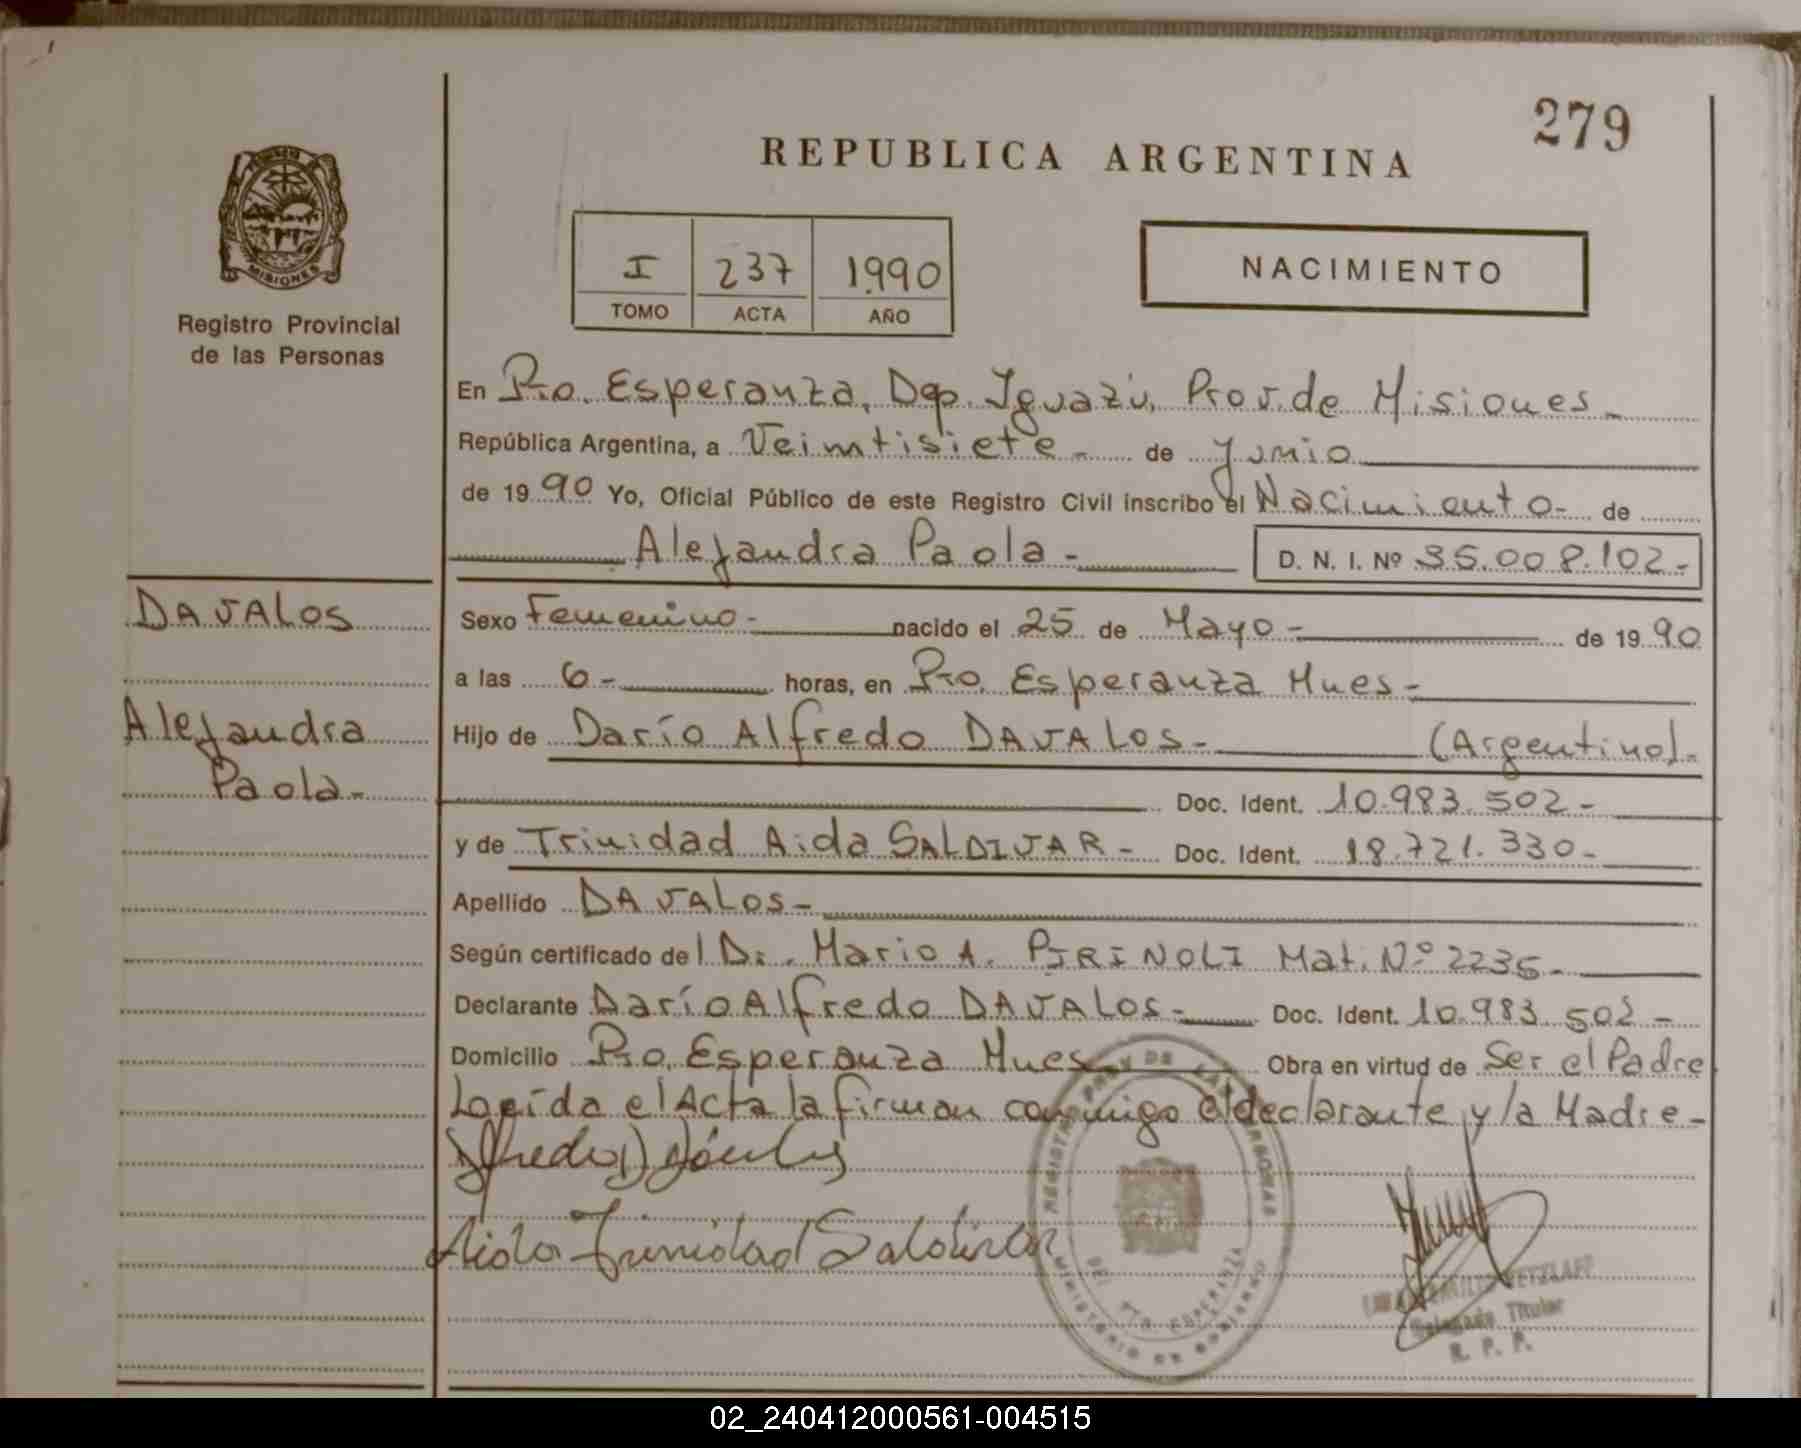 279
REPUBLICA ARGENTINA
MISIONES
Registro Provincial
de las Personas
I 237 1.990
TOMO ACTA AÑO
NACIMIENTO
En Pto. Esperanza, Dep. Iguazú, Prov. de Misiones -
República Argentina, a Veintisiete - de Junio
de 19 90 Yo, Oficial Público de este Registro Civil inscribo el Nacimiento - de
Alejandra Paola - D. N. I. Nº 35.008.102-
DAVALOS
Alejandra
Paola-
Sexo Femenino - nacido el 25 de Mayo - de 19 90
a las 6 - horas, en Pto. Esperanza Mnes -
Hijo de Darío Alfredo DAVALOS - (Argentino)-
Doc. Ident. 10.983.502 -
y de Trinidad Aida SALDIVAR - Doc. Ident. 18.721.330-
Apellido DAVALOS -
Según certificado del Dr. Mario A. PIRINOLI Mat. Nº 2235-
Declarante Darío Alfredo DAVALOS - Doc. Ident. 10.983.502 -
Domicilio Pto. Esperanza Mnes Obra en virtud de Ser el Padre
Leída el Acta la firman conmigo el declarante y la Madre -
Aida Trinidad Saldivar
REGISTRO PROV. DE LAS PERSONAS
MINISTERIO DE GOBIERNO
DEL. PTO. ESPERANZA
Delegado Titular
R. P. P.
02_240412000561-004515